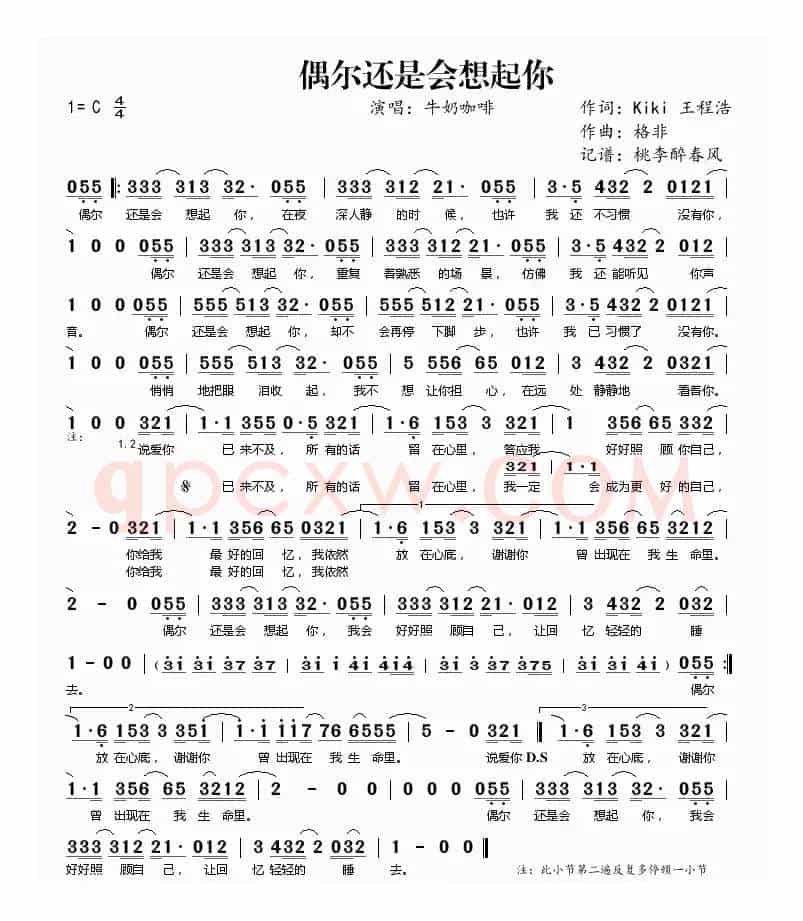 偶尔还是会想起你
1= C 4/4 演唱：牛奶咖啡 作词：Kiki 王程浩
作曲：格非
记谱：桃李醉春风
055 ‖: 333 313 32· 055 | 333 312 21· 055 | 3·5 432 2 0121 |
偶尔 还是会 想起 你，在夜 深人静 的时 候，也许 我 还 不习惯 没有你，
1 0 0 055 | 333 313 32· 055 | 333 312 21· 055 | 3·5 432 2 012 |
偶尔 还是会 想起 你，重复 着熟悉 的场 景，仿佛 我 还 能听见 你声
1 0 0 055 | 555 513 32· 055 | 555 512 21· 055 | 3·5 432 2 0121 |
音。 偶尔 还是会 想起 你，却不 会再停 下脚 步，也许 我 已 习惯了 没有你。
1 0 0 055 | 555 513 32· 055 | 5 556 65 012 | 3 432 2 0321 |
悄悄 地把眼 泪收 起，我不 想 让你担 心，在远 处 静静地 看着你。
1 0 0 321 | 1·1 355 0·5 321 | 1·6 153 3 321 | 1 356 65 332 |
注：
1.2 说爱你 已 来不及，所 有的话 留 在心里，答应我 好好照 顾 你自己，
321 | 1·1
𝄋 已 来不及，所 有的话 留 在心里，我一定 会 成为更 好 的自己，
qpcxw.COM
2 - 0 321 | 1·1 356 65 0321 | 1·6 153 3 321 | 1·1 356 65 3212 |
1
你给我 最 好的回 忆，我依然 放 在心底，谢谢你 曾 出现在 我 生 命里。
你给我 最 好的回 忆，我依然
2 - 0 055 | 333 313 32· 055 | 333 312 21· 012 | 3 432 2 032 |
偶尔 还是会 想起 你，我会 好好照 顾自 己，让回 忆 轻轻的 睡
1 - 0 0 | (3i 3i 37 37 | 3i i 4i 4i4 | 3i 3 37 375 | 3i 3i i i) 055 :‖
去。 偶尔
2
1·6 153 3 35i | i·i iii7 76 6555 | 5 - 0 321 ‖ 1·6 153 3 321 |
3
放 在心底，谢谢你 曾 出现在 我 生 命里。 说爱你 D.S 放 在心底，谢谢你
1·1 356 65 3212 | 2 - 0 0 | 0 0 0 055 | 333 313 32· 055 |
曾 出现在 我 生 命里。 偶尔 还是会 想起 你，我会
333 312 21· 012 | 3 432 2 032 | 1 - 0 0 ‖
好好照 顾自 己，让回 忆 轻轻的 睡 去。 注：此小节第二遍反复多停顿一小节